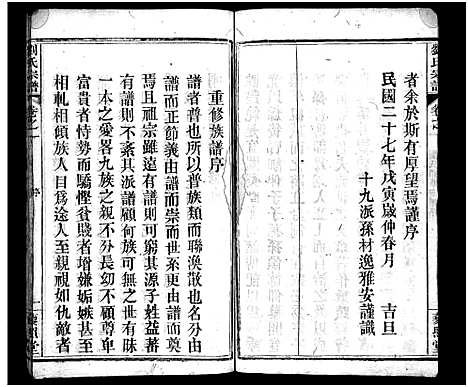 劉氏宗譜
者余於斯有厚望焉謹序
民國二十七年戊寅歲仲春月 吉旦
十九派孫材逸雅安謹識
重修族譜序
譜者普也所以普族類而聯渙散也名分由
譜而正節義由譜而崇而世系由譜而奠
焉且祖宗雖遠有譜則可窮其源子姓益蕃
有譜則不紊其派譜顧何族可無之世有昧
一本之愛者九族之親不分長幼不顧尊卑
富貴者恃勢而驕慳貧賤者增嫌妬嫉甚至
相軋相傾族人目為途人至親視如仇敵者
劉氏宗譜